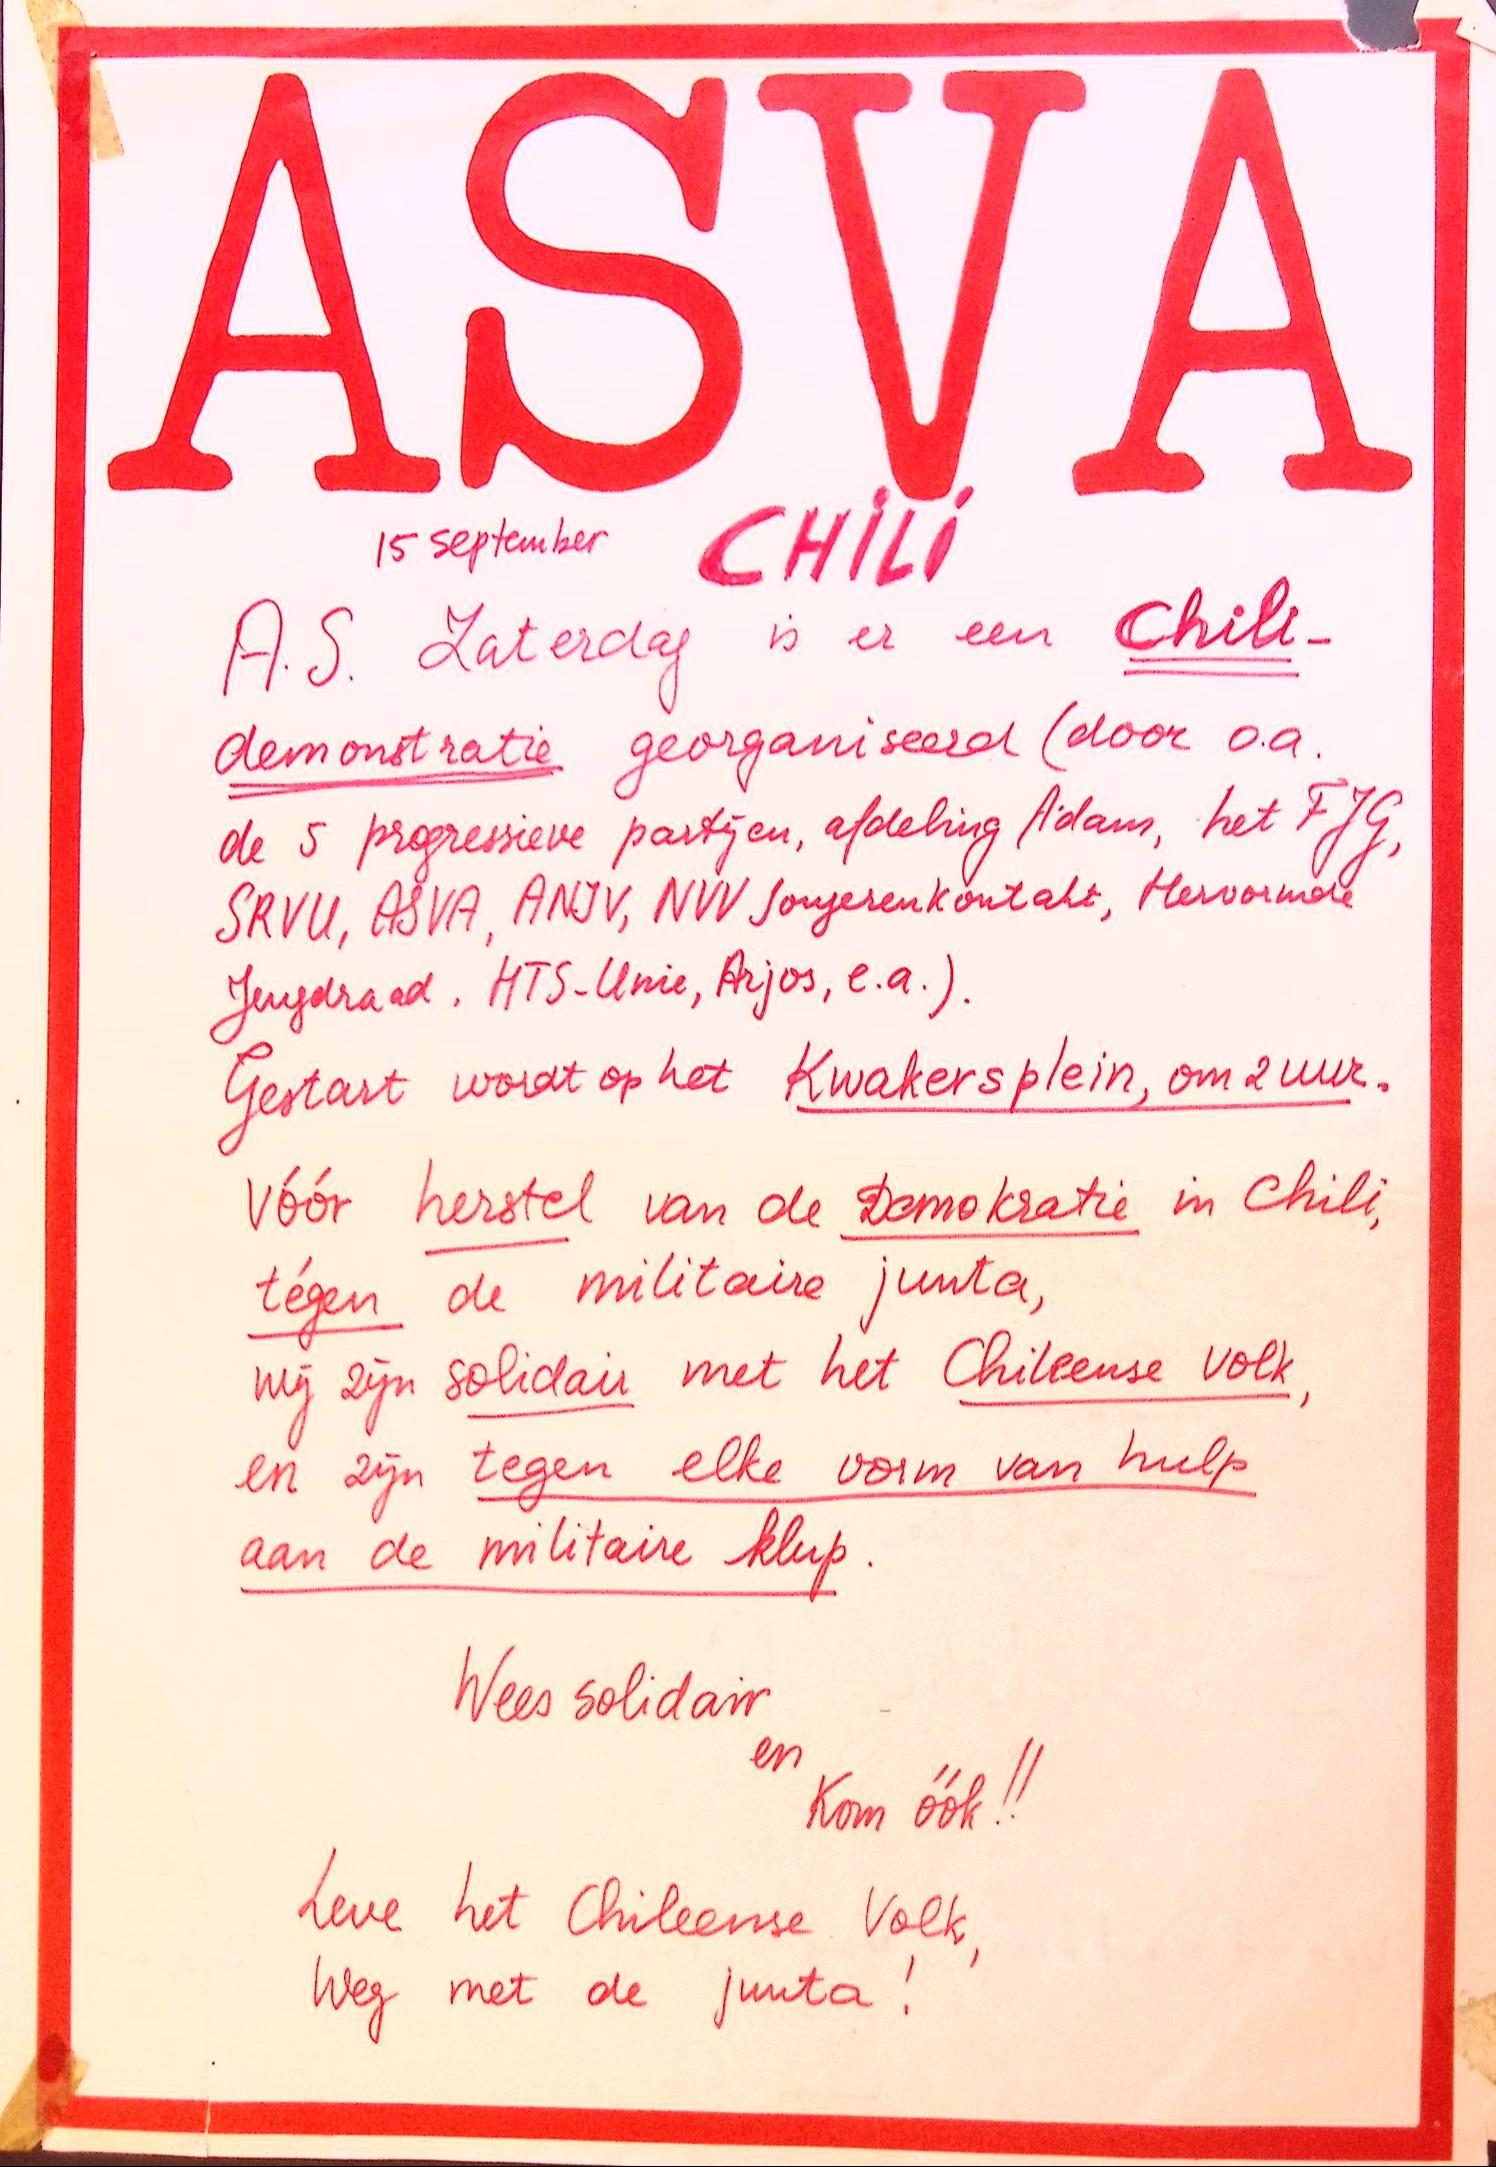 ASVA
15 september CHILI
A.S. Zaterdag is er een Chili-
demonstratie georganiseerd (door o.a.
de 5 progressieve partijen, afdeling A'dam, het FJG,
SRVU, ASVA, ANJV, NVV Jongerenkontakt, Hervormde
Jeugdraad, HTS-Unie, Arjos, e.a.).
Gestart wordt op het Kwakersplein, om 2 uur.
Vóór herstel van de Demokratie in Chili,
tégen de militaire junta,
wij zijn solidair met het Chileense volk,
en zijn tegen elke vorm van hulp
aan de militaire klup.
Wees solidair
en
Kom óók!!
Leve het Chileense Volk,
Weg met de junta!